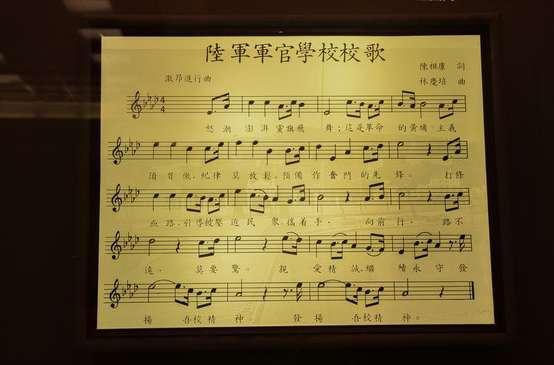 陸軍軍官學校校歌
陳棋廉 詞
激昂進行曲
林慶培 曲
4
4
怒潮澎湃黨旗飛舞;這是革命的黃埔主義
須貫徹.紀律莫放鬆.預備作奮鬥的先鋒.打條
血路.引導被壓迫民眾.携着手.向前行.路不
遠.莫要驚.親愛精誠.繼續永守發
揚吾校精神.發揚吾校精神。